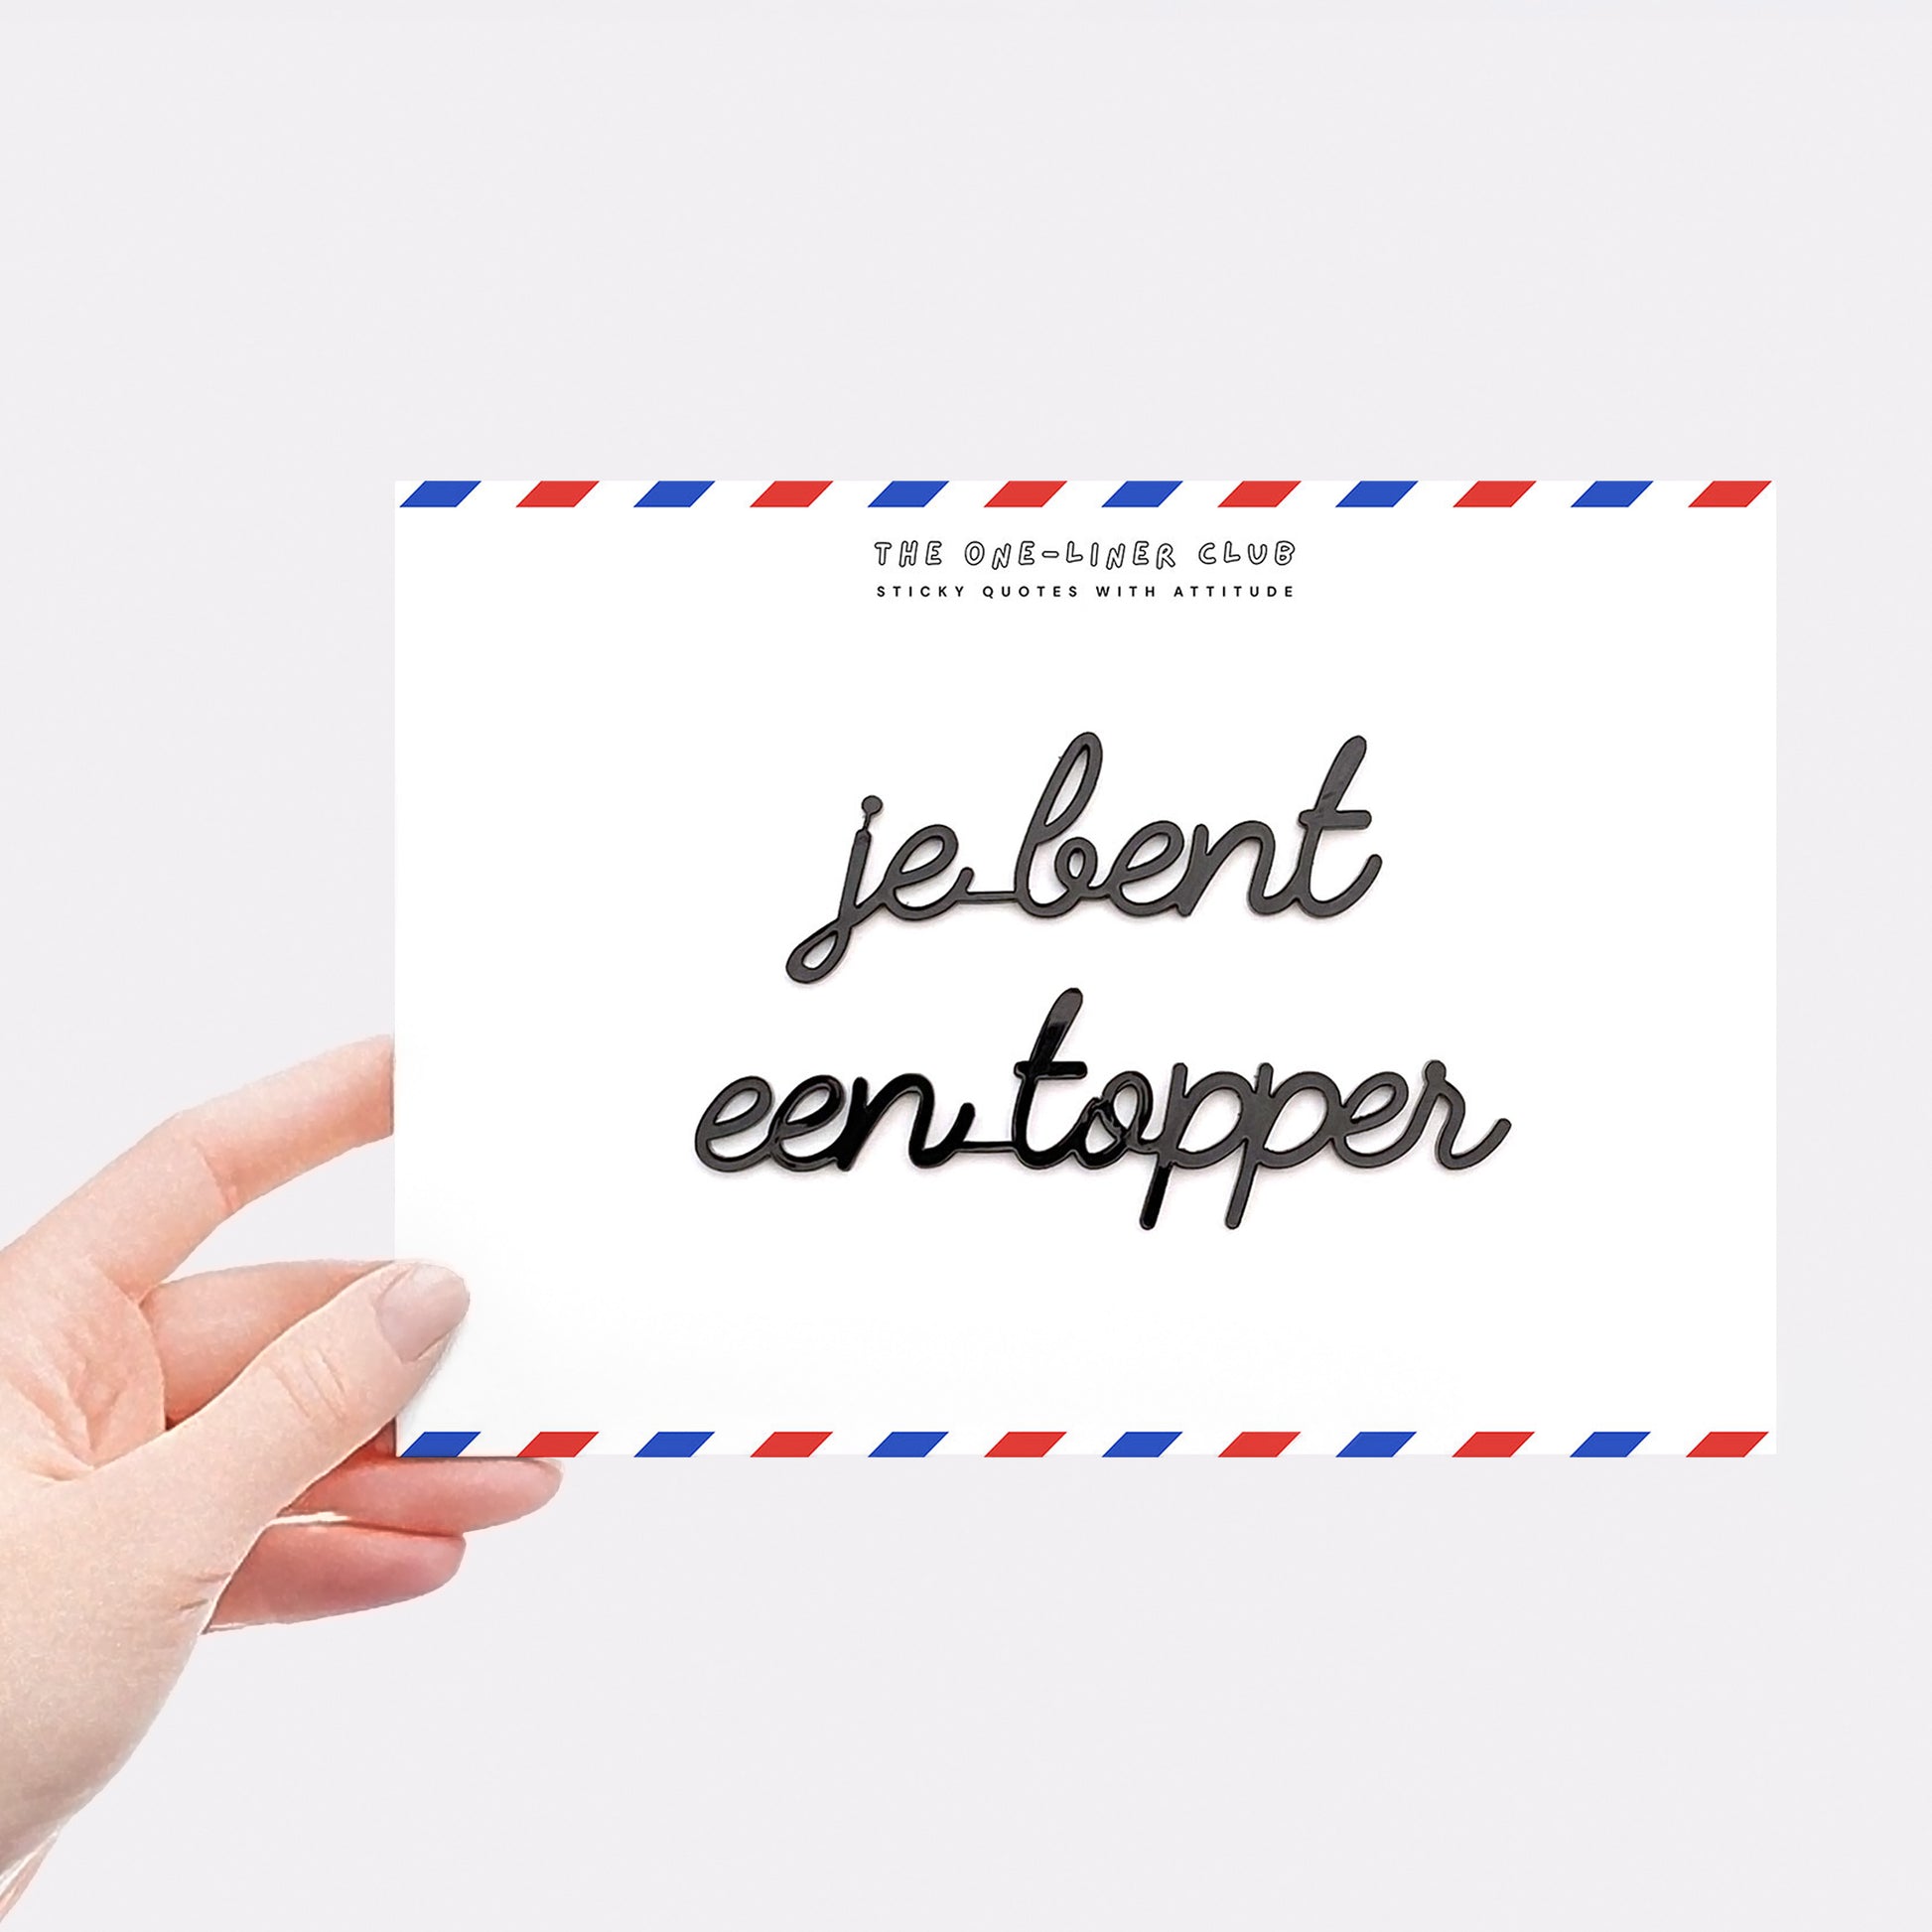 THE ONE-LINER CLUB
STICKY QUOTES WITH ATTITUDE
je bent
een topper